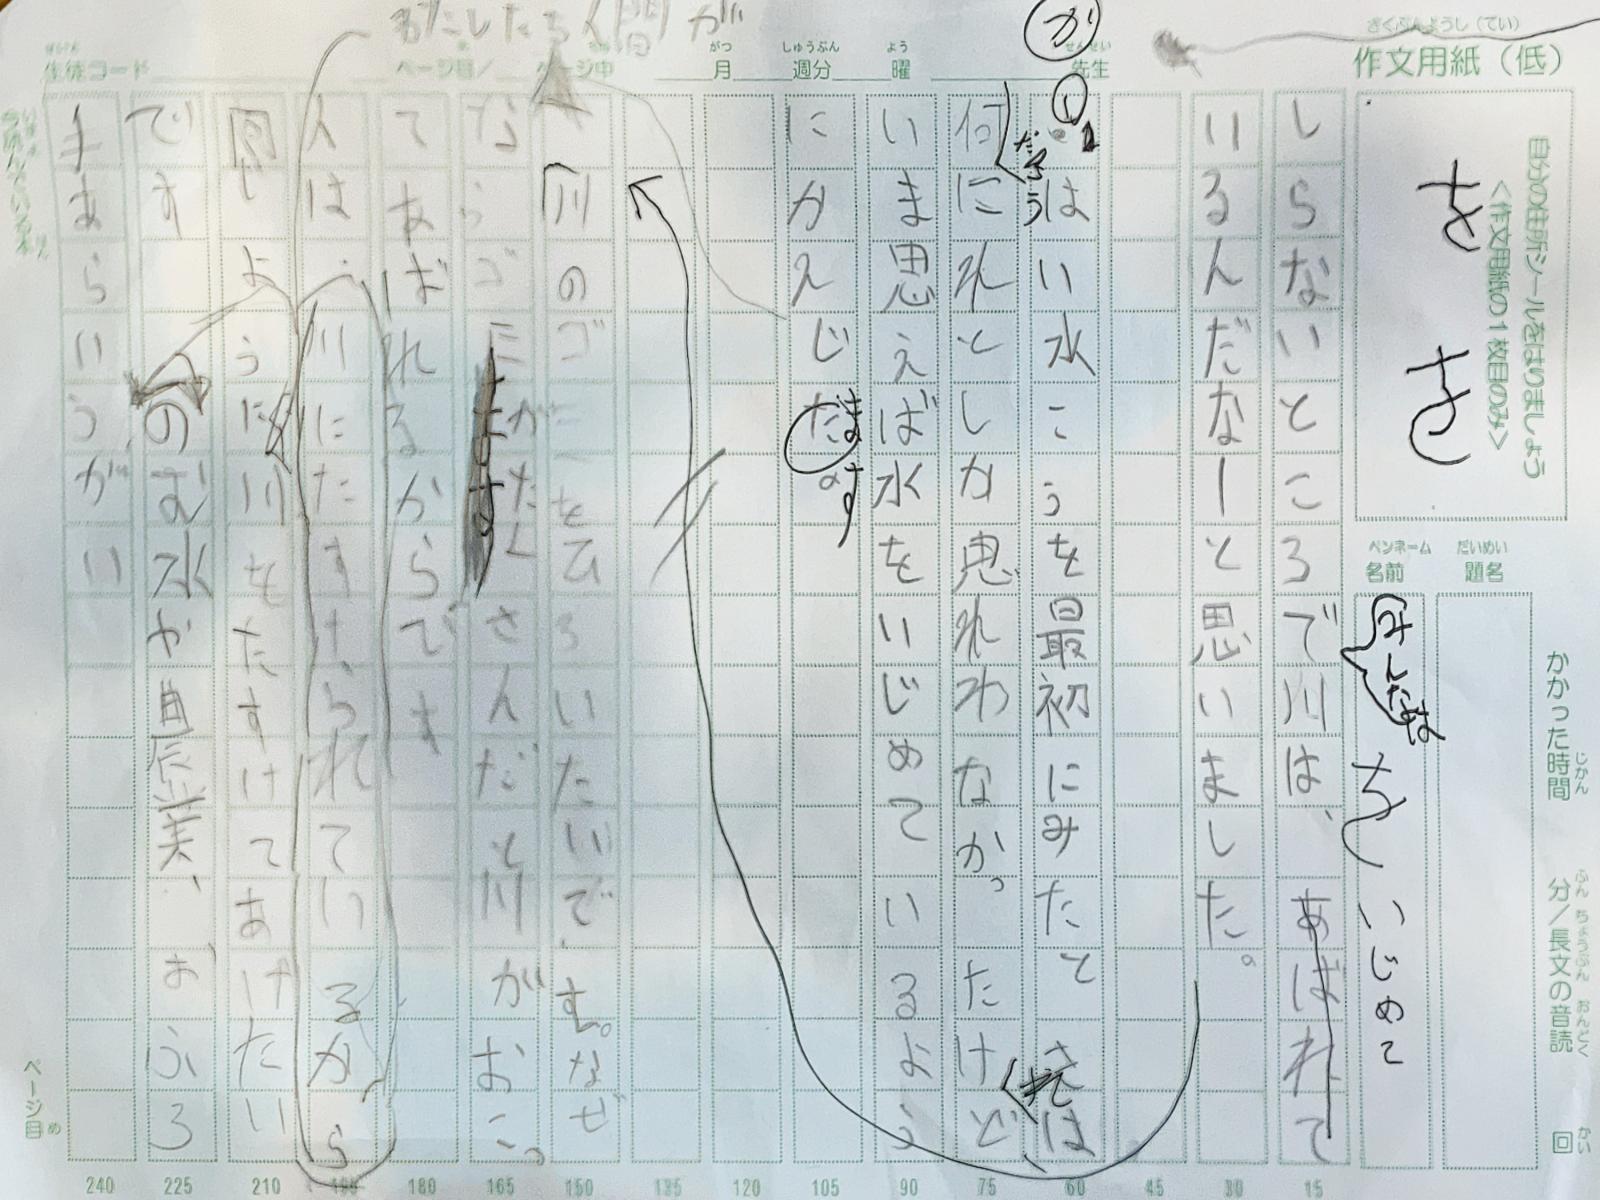 さくぶんようし(てい)
作文用紙(低)
自分の住所シールをはりましょう
<作文用紙の1枚目のみ>
を
を
だいめい
題名
ペンネーム
名前
かかった時間
じかん
分/長文の音読
ふん ちょうぶん おんどく
回
かい
みんなは
を いじめて
生徒コード
ページ目/
ページ中
がつ
月
しゅうぶん
週分
よう
曜
せんせい
先生
わたしたち人間が
か
しらないところで川は、あばれて
いるんだなーと思いました。
はい水こうを最初にみたときは
だろう
何にれとしか思れわなかったけど
いま思えば水をいじめているよう
にかんじます。
川のゴミをひろいたいです。なぜ
ならゴミがたくさんだと川がおこっ
てあばれるからです
人は、川にたすけられているから
同じように川をたすけてあげたい
です
のむ水や農業、おふろ
手あらいうがい
ページ目
め
15
30
45
60
75
90
105
120
135
150
165
180
195
210
225
240